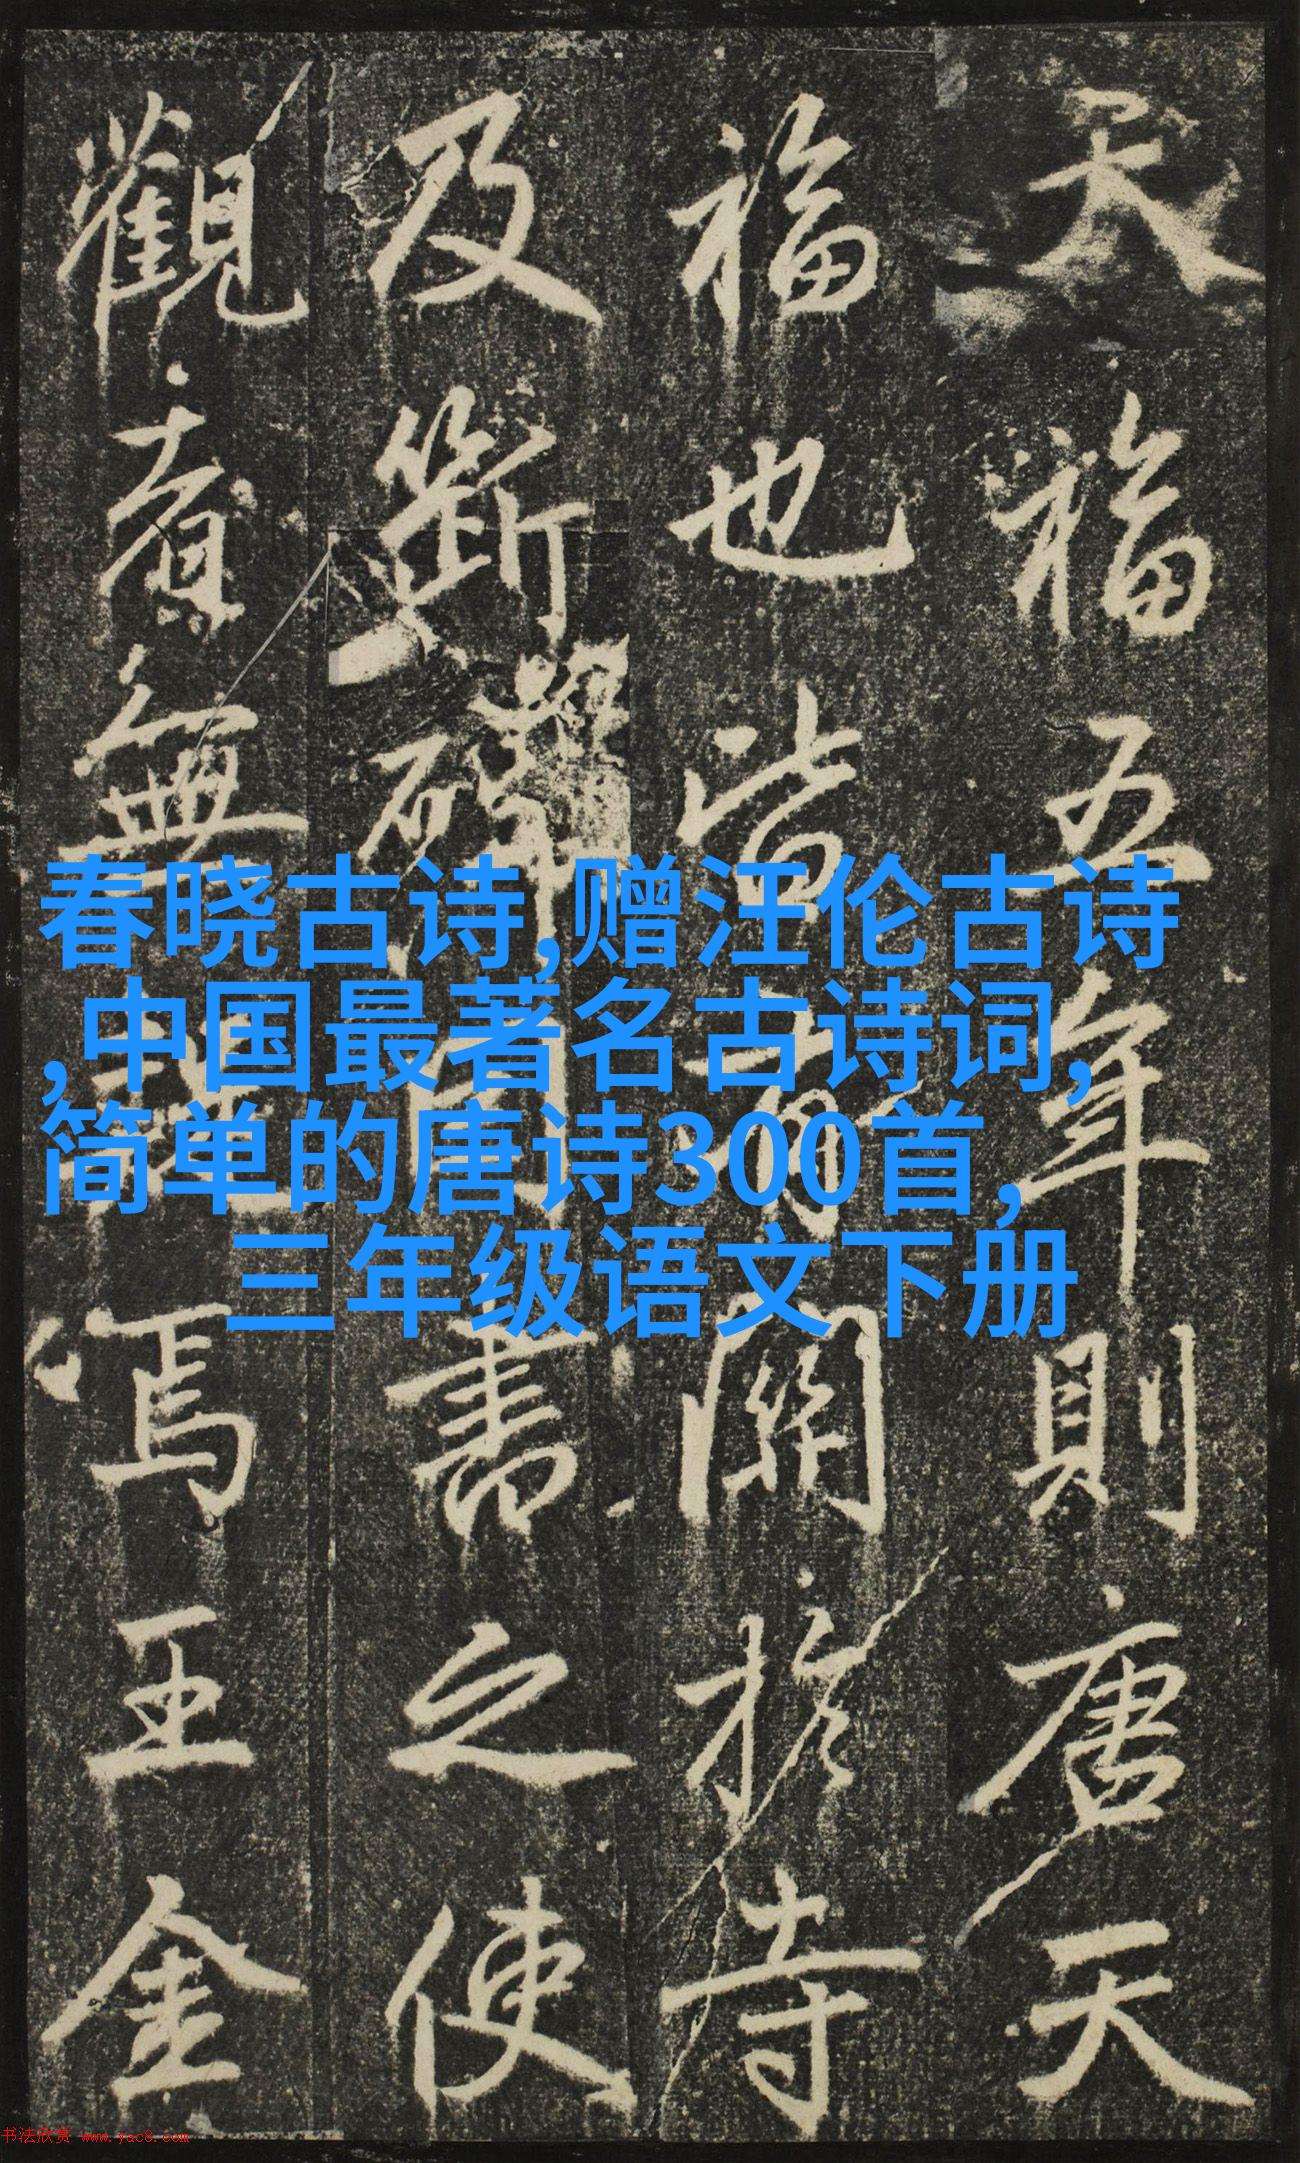 天福五年則唐天
福也皆有關於寺
及斷碑書之使
觀者無焉王金
春晓古诗,赠汪伦古诗
,中国最著名古诗词,
简单的唐诗300首,
三年级语文下册
书法欣赏 www.yac8.com